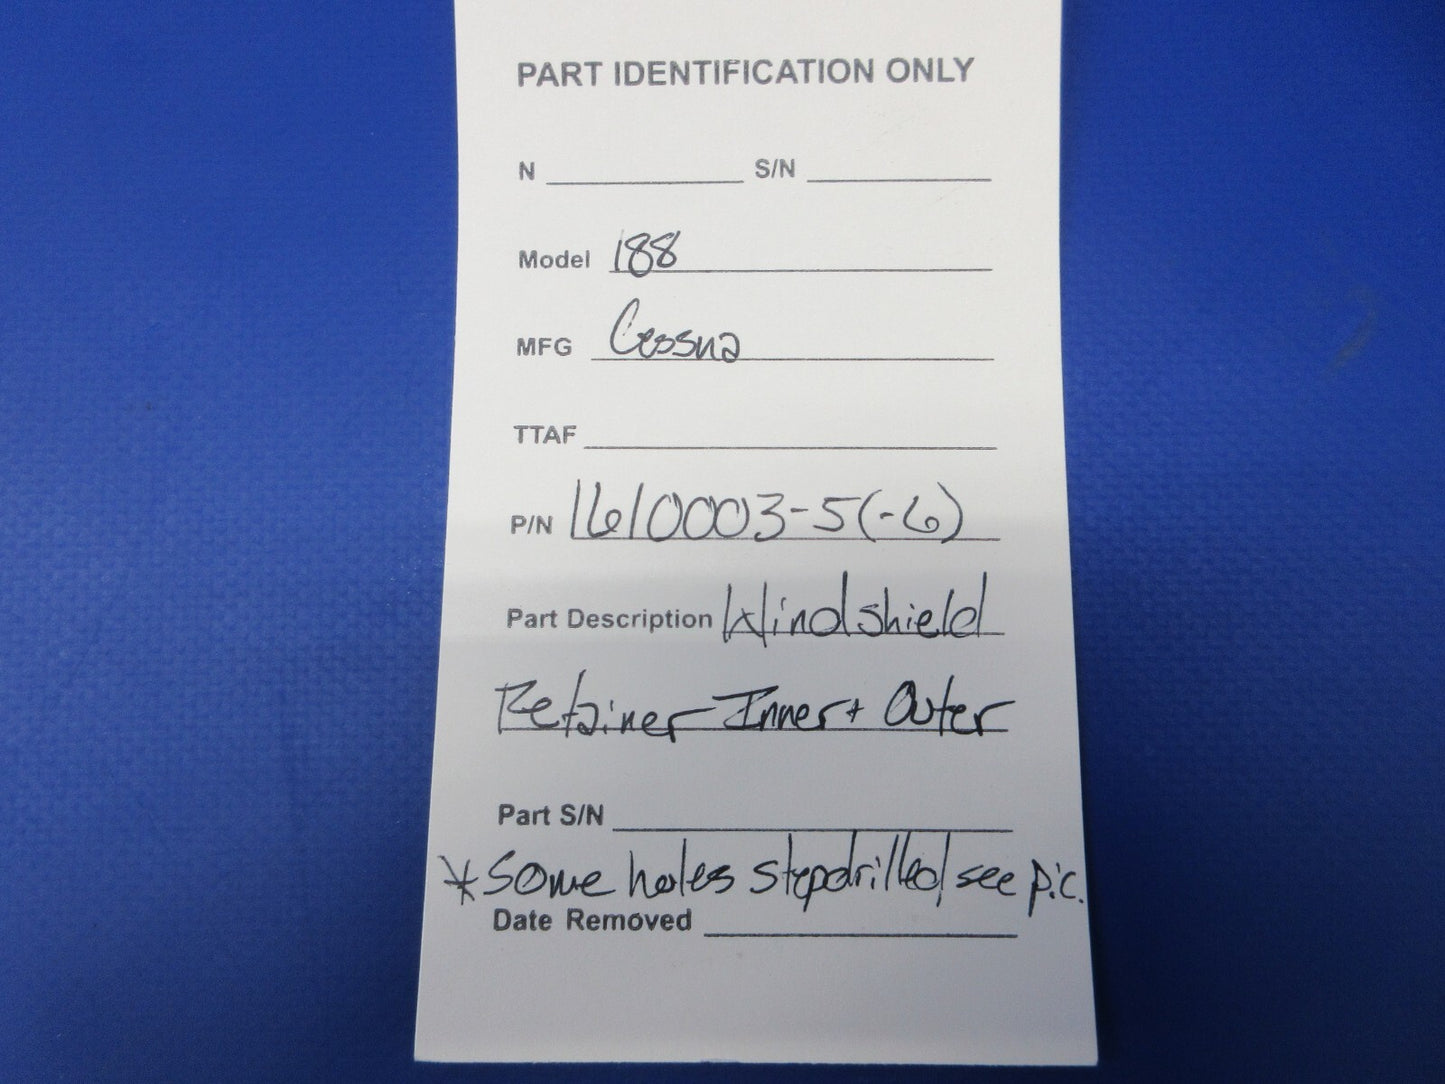 PART IDENTIFICATION ONLY
N S/N
Model 188
MFG Cessna
TTAF
P/N 1610003-5(-6)
Part Description Windshield
Retainer Inner + Outer
Part S/N
* Some holes stepdrilled, see pic.
Date Removed